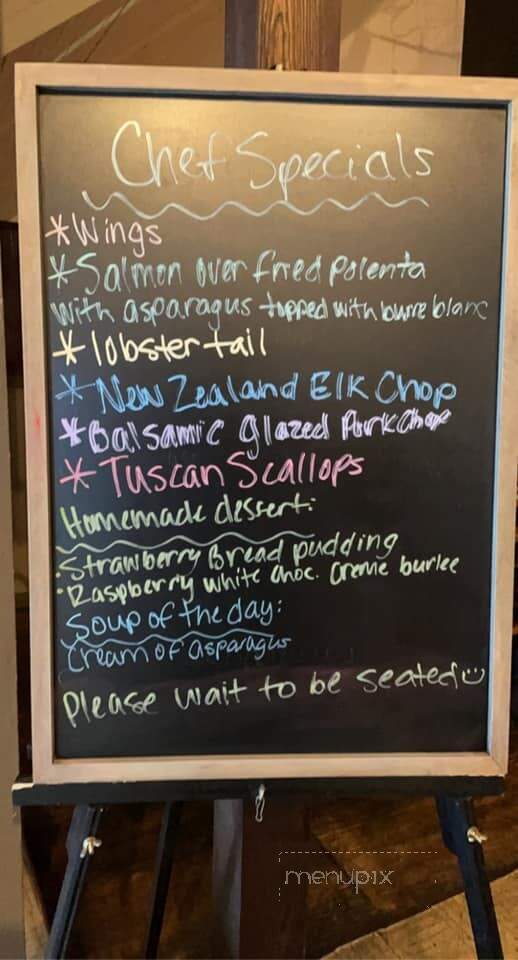 Chef Specials
*Wings
*Salmon over fried polenta
with asparagus topped with burre blanc
*lobster tail
*New Zealand Elk Chop
*Balsamic glazed Pork Chop
*Tuscan Scallops
Homemade dessert:
·Strawberry Bread pudding
·Raspberry white choc. creme burlee
Soup of the day:
Cream of asparagus
Please wait to be seated☺
menupix